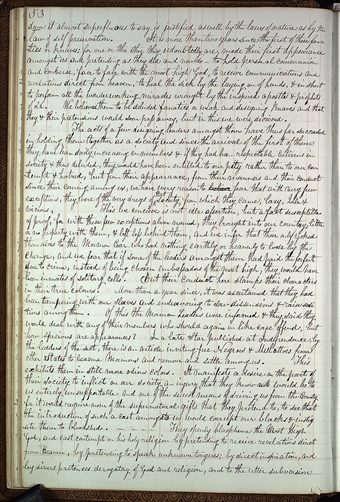 53
dom it almost superfluous to say is justified as well by the laws of nature as by the
law of self preservation. It is more than two years since the first of these
fanatics or knaves for one or the other they undoubtedly are, made their first appearance
amongst us and pretending as they did and now do to hold personal communion
and converse face to face with the most high God, to receive communications and
revelations direct from heaven, to heal the sick by the laying on of hands, & in short
to perform all the wonder working miracles wrought by the inspired apostles & prophets
of old. We believed them to be deluded fanatics or weak and designing knaves and that
they & their pretensions would soon pass away, but in this we were deceived.
The acts of a few designing leaders amongst them have thus far succeeded
in holding them together as a society and since the arrival of the first of them
they have been daily increasing in numbers & if they had been respectable citizens in
society & thus deluded, they would have been entitled to our pity rather than to our con-
tempt & hatred, but from their appearance, from their manners and their conduct
since their coming among us, we have every reason to fear that with very few
exceptions, they were of the very dregs of society from which they came, lazy, idle &
vicious. This we conceive is not idle assertion, but a fact susceptible
of proof, for with these few exceptions above named, they brought into our country little
or no property with them & left less behind them, and we infer that those only yoked
themselves to the Mormon Car who had nothing earthly or heavenly to lose by the
change, and we fear that if some of the leaders amongst them had paid the forfeit
due to crime, instead of being chosen embassadors of the most high, they would have
been inmates of solitary cells. But their conduct here stamps their characters
in their true colours. More than a year since, it was ascertained that they had
been tampering with our slaves and endeavoring to sow dissensions & raise sedi-
tions among them. Of this the Mormon Leaders were informed & they said they
would deal with any of their members who should again in like case offend, but
how specious are appearances? In a late Star published at Independence, by
the leaders of the sect, there is an article inviting free Negroes & Mulattoes from
other States to become Mormons and remove and settle among us. This
exhibits them in still more odious colors. It manifests a desire on the part of
their society to inflict on our society an injury that they know would be to
us entirely insupportable and one of the surest means of driving us from the County,
for it would require none of the supernatural gifts that they pretend to, to see that
the introduction of such a cast amongst us would corrupt our blacks & instig-
ate them to bloodshed. They openly blaspheme the Most High
God, and cast contempt on his holy religion by pretending to receive revelations direct
from Heaven, by pretending to speak unknown tongues, by direct inspiration, and
by divers pretences derogatory of God and religion, and to the utter subversion